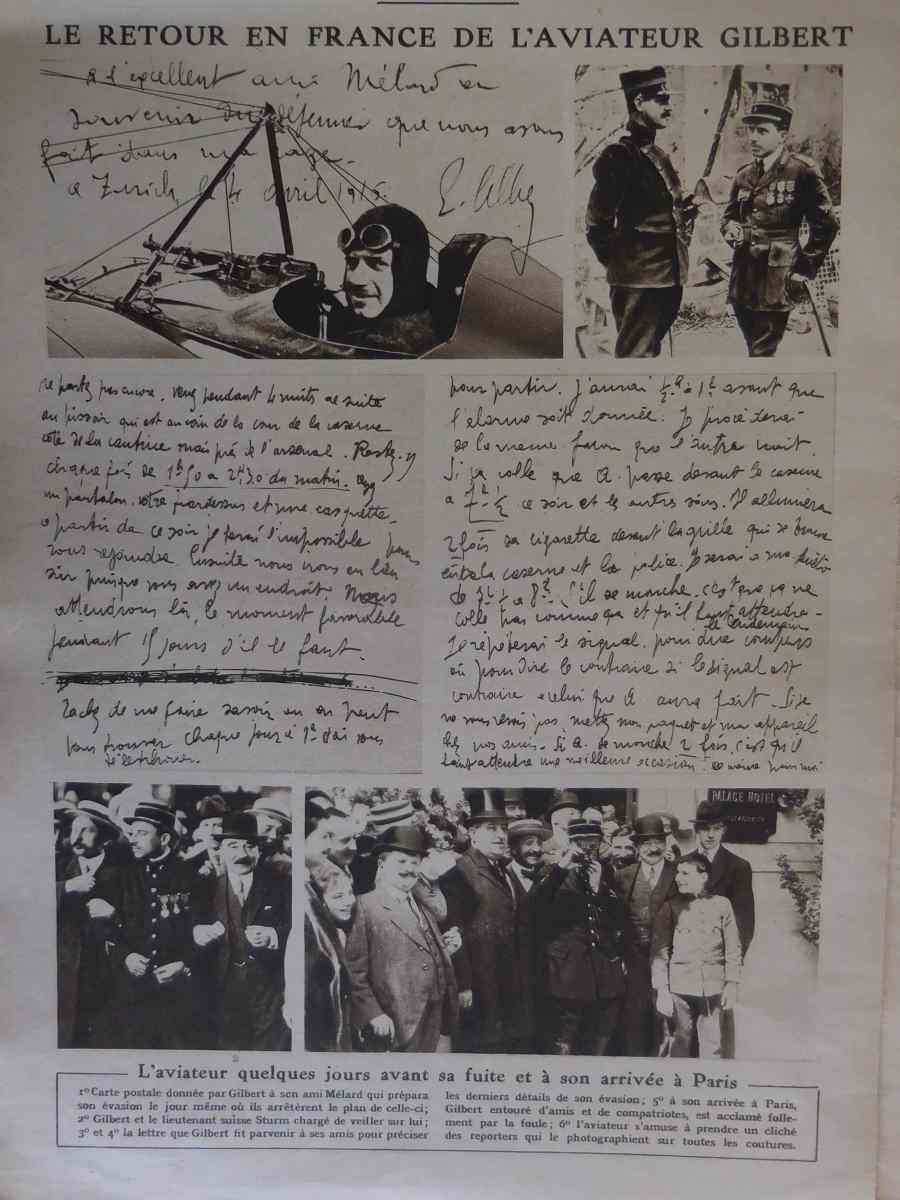 LE RETOUR EN FRANCE DE L'AVIATEUR GILBERT
à l'excellent ami Mélard en
souvenir du déjeuner que nous avons
fait dans ma cage.
à Zurich, le 4 avril 1916.
ne partez pas encore. Venez pendant 4 nuits de suite
au pissoir qui est au coin de la cour de la caserne
côté de la cantine mais près de l'arsenal. Restez-y
chaque fois de 1h50 à 2h,30 du matin. ayez
un pantalon, votre pardessus et une casquette.
à partir de ce soir je ferai l'impossible pour
vous rejoindre. Ensuite nous irons en lieu
sûr puisque vous avez un endroit. Nous
attendrons là, le moment favorable
pendant 15 jours s'il le faut.
Tachez de me faire savoir où on peut
vous trouver chaque jour
téléphoner.
pour partir. J'aurai 1/2 h à 1h avant que
l'alarme soit donnée. Je procèderai
de la même façon que l'autre nuit.
Si ça colle que A. passe devant la caserne
à 7h 1/2 ce soir et les autres soirs. Il allumera
2 fois sa cigarette devant la grille qui se trouve
entre la caserne et la police. Je serai à ma fenêtre
de à 8h. S'il se mouche, c'est que ça ne
colle pas comme ça et qu'il faut attendre
le lendemain
Je répèterai le signal pour dire compris
ou pour dire le contraire si le signal est
contraire à celui que A aura fait. Si je
ne vous revois pas, mettez mon paquet et mon appareil
chez vos amis. Si A. se mouche 2 fois, c'est qu'il
faut attendre une meilleure occasion. De même pour moi
PALACE HOTEL
L'aviateur quelques jours avant sa fuite et à son arrivée à Paris
1º Carte postale donnée par Gilbert à son ami Mélard qui prépara
son évasion le jour même où ils arrêtèrent le plan de celle-ci;
2º Gilbert et le lieutenant suisse Sturm chargé de veiller sur lui;
3º et 4º la lettre que Gilbert fit parvenir à ses amis pour préciser
les derniers détails de son évasion; 5º à son arrivée à Paris,
Gilbert entouré d'amis et de compatriotes, est acclamé folle-
ment par la foule; 6º l'aviateur s'amuse à prendre un cliché
des reporters qui le photographient sur toutes les coutures.